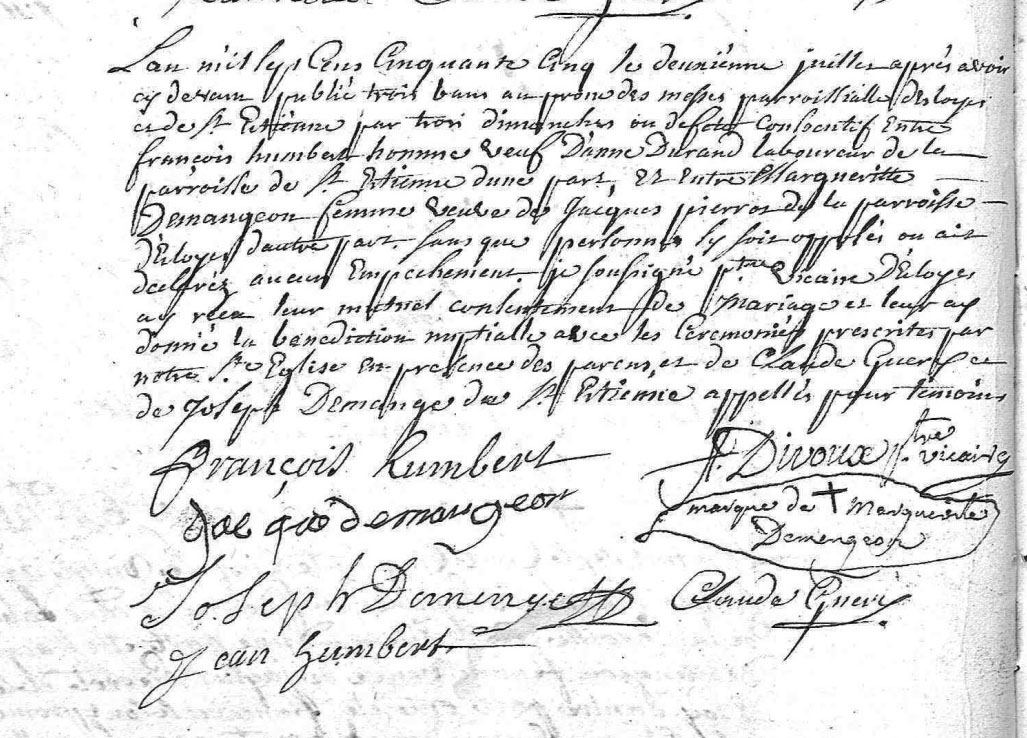 L'an mil sept Cens Cinquante Cinq le deuxième juillet après avoir
cy devant publié trois bans au prone des messes parroissialle desloyes
et de St Estienne par trois dimanches ou de festes consecutif Entre
françois humbert homme veuf D'anne Durand laboureur de la
parroisse de St Estienne d'une part, Et Entre Margueritte
Demangeon femme veuve de Jacques pierrot de la parroisse
D'Eloyes d'autre part. sans que personnes sy soit opposés ou ait
declarez aucun Empechement je soussigné ptre vicaire D'Eloyes
ay recu leur mutuel consentement de Mariage et leur ay
donné la benediction nuptialle avec les Ceremonies prescrites par
notre Ste Eglise En presence des parens, et de Claude Guery et
de Joseph Demange de St Estienne appellés pour temoins
françois humbert
J. Divoux ptre vicaire
demangeon
marque de + Marguerite
Demengeon
Joseph Demenge
Claude Guery
Jean humbert